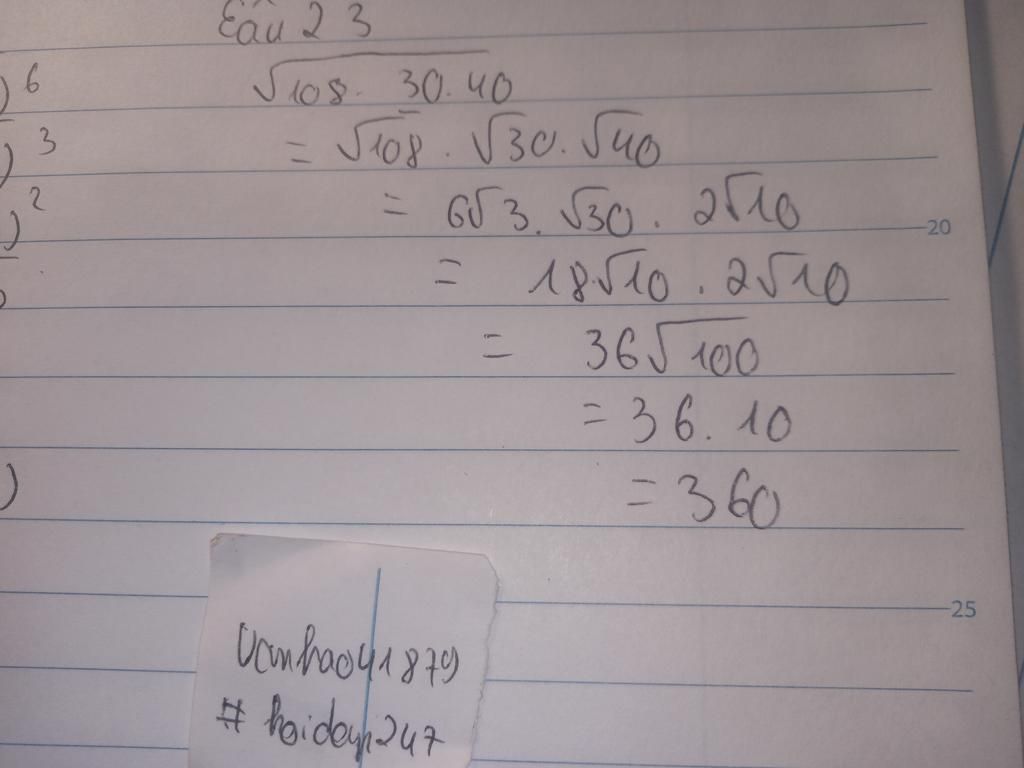 Câu 23
)⁶
√108. 30.40
)³
= √108 . √30. √40
)²
= 6√3. √30. 2√10
20
= 18√10 . 2√10
= 36√100
= 36. 10
)
= 360
25
Vanhao41879
# hoidap247